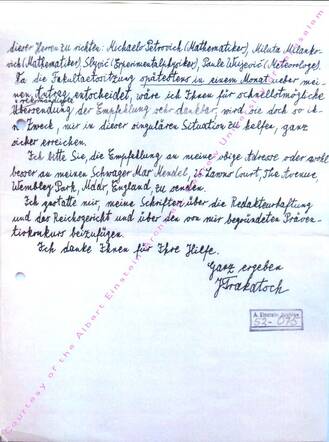 dieser Herren zu richten: Michaelo Petrovich (Mathematiker), Milutz Milanko-
vich (Mathematiker), Slyvić (Experimentalphysiker), Paule Wujević (Meteorologe).
Da die Fakultaetssitzung spätestens in einem Monat ueber mei-
nen Antrag entscheidet, wäre ich Ihnen für schnellstmögliche
rekommandierte
Übersendung der Empfehlung sehr dankbar, wird sie doch so ih-
ren Zweck, mir in dieser singulären Situation zu helfen, ganz
sicher erreichen.
Ich bitte Sie, die Empfehlung an meine obige Adresse oder wohl
besser an meinen Schwager Max Mendel, 26 Lawns Court, The Avenue,
Wembley Park, Mddx, England, zu senden.
Ich gestatte mir, meine Schriften über die Redakteurhaftung
und das Reichsgericht und über den von mir begründeten Präven-
tivkonkurs beizufügen.
Ich danke Ihnen für Ihre Hilfe.
Ganz ergeben
J Trakatoch
A. Einstein Archive
52-075
Courtesy of the Albert Einstein Archives
Universität Jerusalem